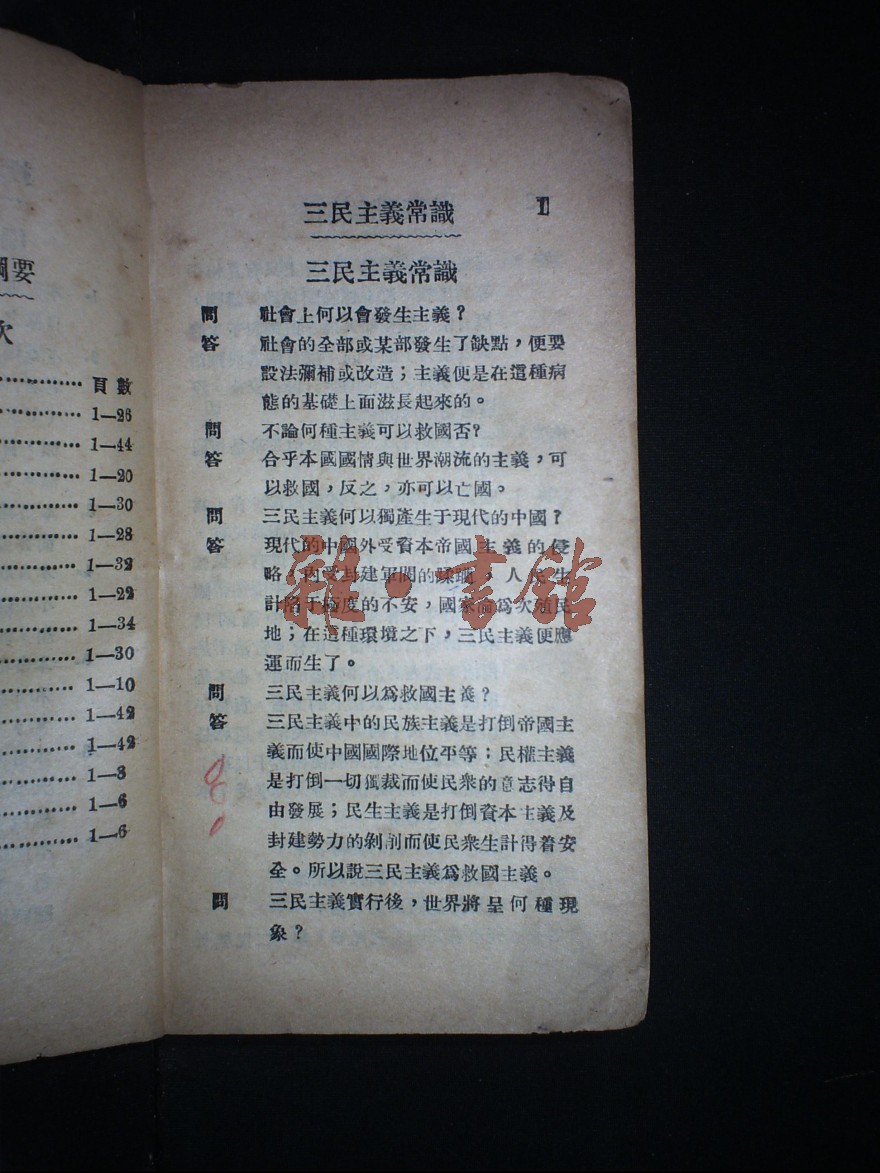 綱要
次
頁數
1—26
1—44
1—20
1—30
1—28
1—32
1—22
1—34
1—30
1—10
1—42
1—42
1—3
1—6
1—6
三民主義常識 1
三民主義常識
問 社會上何以會發生主義？
答 社會的全部或某部發生了缺點，便要
設法彌補或改造；主義便是在這種病
態的基礎上面滋長起來的。
問 不論何種主義可以救國否？
答 合乎本國國情與世界潮流的主義，可
以救國，反之，亦可以亡國。
問 三民主義何以獨產生于現代的中國？
答 現代的中國外受資本帝國主義的侵
略，內受封建軍閥的，人民生
計陷于極度的不安，國家淪爲次殖民
地；在這種環境之下，三民主義便應
運而生了。
問 三民主義何以爲救國主義？
答 三民主義中的民族主義是打倒帝國主
義而使中國國際地位平等；民權主義
是打倒一切獨裁而使民衆的意志得自
由發展；民生主義是打倒資本主義及
封建勢力的剝削而使民衆生計得着安
全。所以說三民主義爲救國主義。
問 三民主義實行後，世界將呈何種現
象？
雜·書館